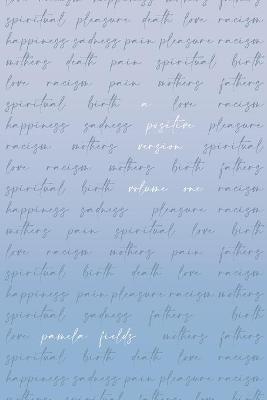 spiritual pleasure death love racism
happiness sadness pain pleasure racism
mothers death pain spiritual birth
love racism pain mothers fathers
spiritual birth a love racism
happiness sadness positive pleasure
racism mothers version spiritual
love racism mothers birth fathers
spiritual birth volume one racism
happiness sadness pleasure racism
mothers pain spiritual love birth
love racism mothers pain fathers
spiritual birth death love racism
happiness pain pleasure racism mothers
spiritual sadness fathers birth
love pamela fields mothers fathers
spiritual birth death love racism
happiness sadness pain pleasure racism